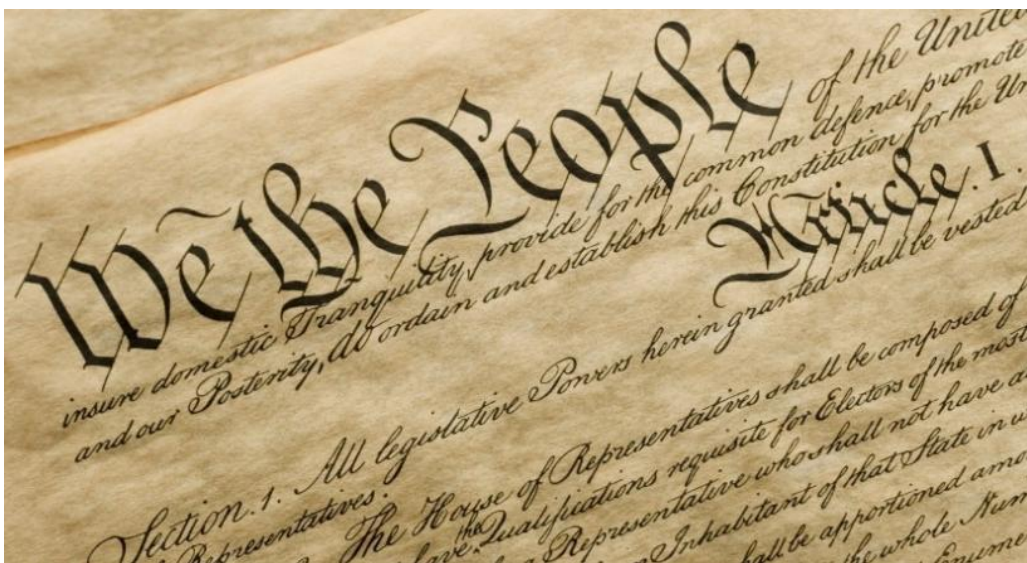 We the People of the United
insure domestic Tranquility, provide for the common defence, promote
and our Posterity, do ordain and establish this Constitution for the Un
Article. I.
Section. 1. All legislative Powers herein granted shall be vested
Representatives.
The House of Representatives shall be composed of
have the Qualifications requisite for Electors of the most
Representative who shall not have a
Inhabitant of that State in w
shall be apportioned amo
the whole Num
Enume